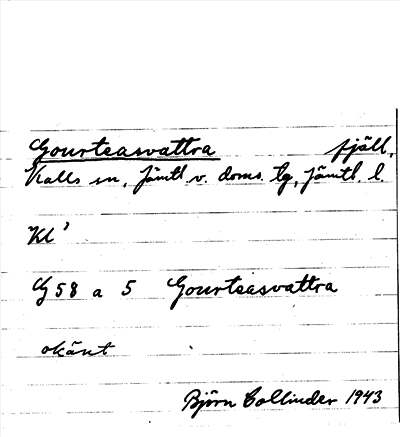 Gourtsasvattra fjäll,
Kalls sn, Jämtl. v. doms. tg, Jämtl. l.
Kl'
G 58 a 5 Gourtsasvattra
okänt
Björn Collinder 1943